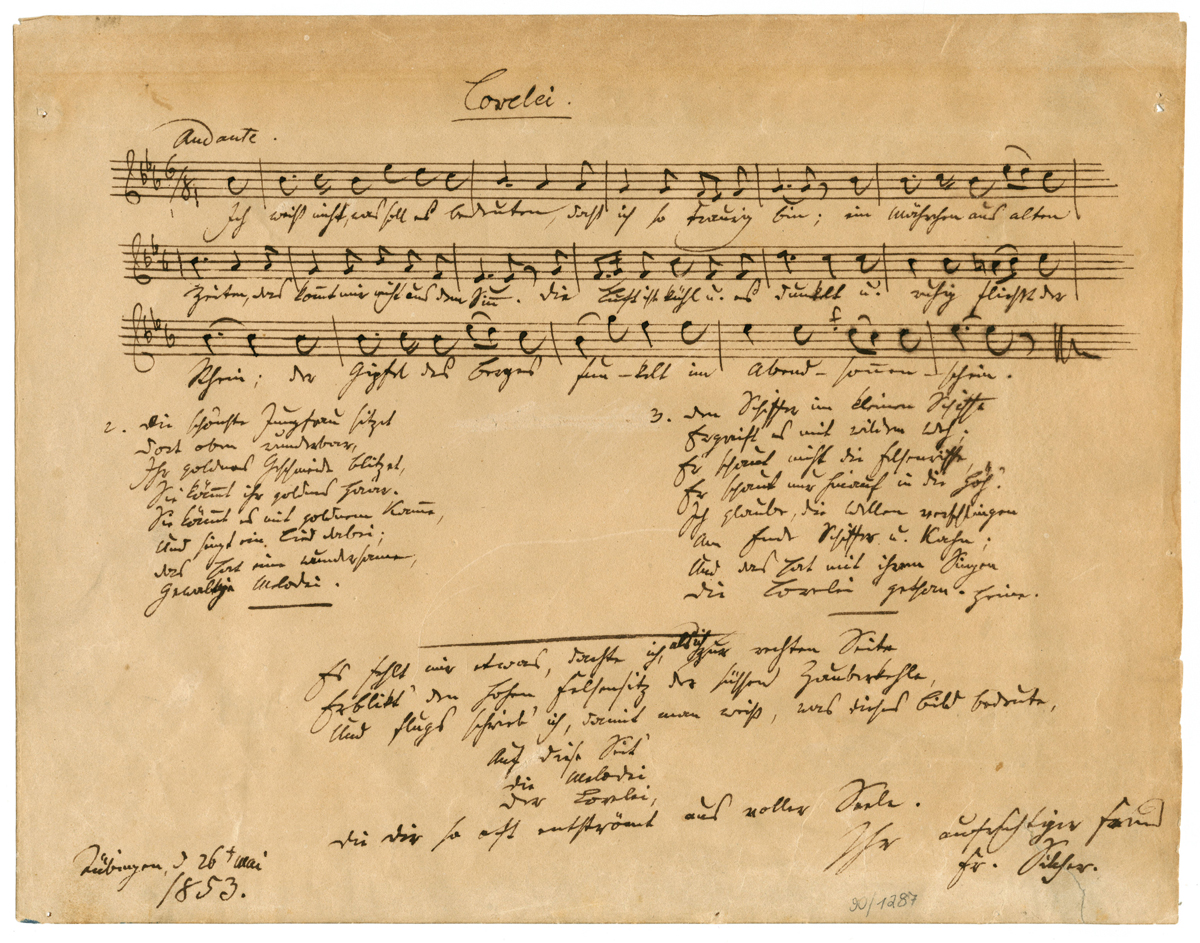 Lorelei.
Andante.
6/8
Ich weiß nicht, was soll es bedeuten, daß ich so traurig bin; ein Mährchen aus alten
Zeiten, das kom̄t mir nicht aus dem Sin̄. Die Luft ist kühl u. es dunkelt u. ruhig fließt der
f
Rhein; der Gipfel des Berges fun-kelt im Abend-sonnen-schein.
2. Die schönste Jungfrau sitzet
Dort oben wunderbar,
Ihr goldnes Geschmeide blitzet,
Sie käm̄t ihr goldnes Haar.
Sie käm̄t es mit goldnem Kam̄e,
Und singt ein Lied dabei;
Das hat eine wundersame,
Gewaltge Melodei.
3. Den Schiffer im kleinen Schiffe
Ergreift es mit wildem Weh;
Er schaut nicht die Felsenriffe,
Er schaut nur hinauf in die Höh'.
Ich glaube, die Wellen verschlingen
Am Ende Schiffer u. Kahn;
Und das hat mit ihrem Singen
Die Lorelei gethan. Heine.
Es fehlt mir etwas, dachte ich, als ich zur rechten Seite
Erblikt' den hohen Felsensitz der süssen Zauberkehle,
Und flugs schrieb' ich, damit man weiß, was dieses Bild bedeute,
Auf diese Seit'
Die Melodei
Der Lorelei,
Die Dir so oft entströmt aus voller Seele.
Ihr aufrichtiger Freund
Fr. Silcher.
Tübingen, d 26t Mai
1853.
90/1287